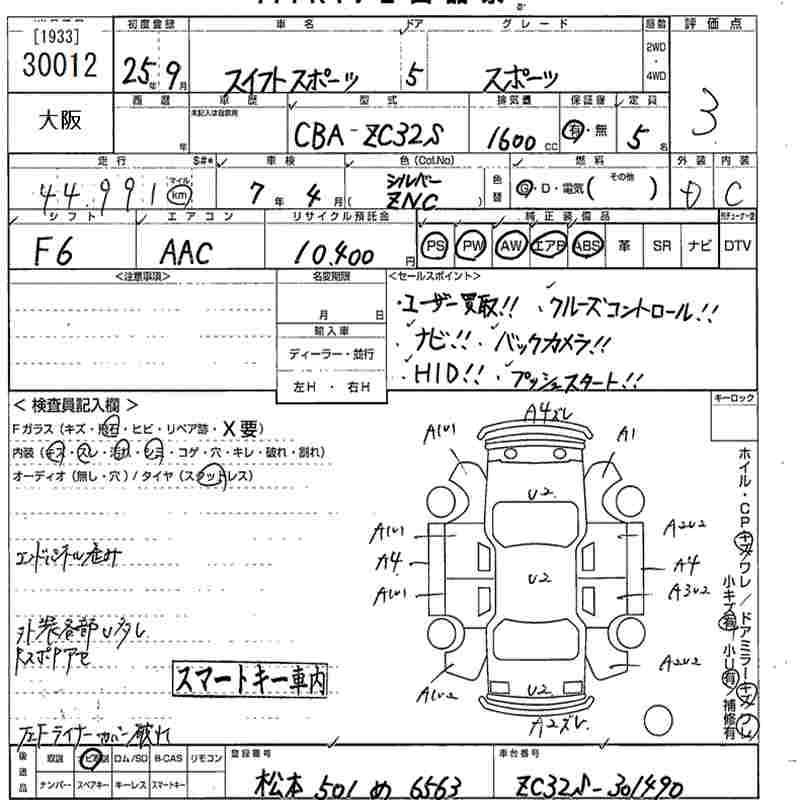 [1933]
30012
初度登録 車名 ドア グレード
25年 9月 スイフトスポーツ 5 スポーツ
2WD
・
4WD
評価点
3
大阪
西暦 車歴 型式 排気量 保証書 定員
未記入は自家用
年 CBA-ZC32S 1600 CC 有・無 5名
走行 S#* 車検 色(Col.No) 燃料 外装 内装
44,991 マイル km 7年 4月 ( シルバー ZNC ) 色替 G・D・電気( その他 ) D C
シフト エアコン リサイクル預託金 純正装備品
F6 AAC 10,400円 PS PW AW エアB ABS 革 SR ナビ DTV
<注意事項> 名変期限 <セールスポイント>
月 日
輸入車
ディーラー・並行
左H ・ 右H
・ユーザー買取!! クルーズコントロール!!
・ナビ!! バックカメラ!!
・HID!! プッシュスタート!!
<検査員記入欄> キーロック
Fガラス(キズ・飛石・ヒビ・リペア跡・X要)
内装(キズ・スレ・汚れ・シミ・コゲ・穴・キレ・破れ・割れ)
オーディオ(無し・穴)/タイヤ(スタッドレス)
エンドパネル歪み
外装各部Uダレ
RスポPアセ
スマートキー車内
左Fライナーカバー破れ
A4ズレ
A1U1 A1
U2
A1U1 A2U2
A4 A4
U2
A1U1 A3U2
A2U2
A1U2 U2
A2ズレ
ホイル・CPキズワレ/ドアミラーキズワレ
小キズ有 小U有 補修有
後送品 取説 ナビ取説 ロム/SD B-CAS リモコン
ナンバー スペアキー キーレス スマートキー
登録番号 車台番号
松本 501 め 6563 ZC32S-301490